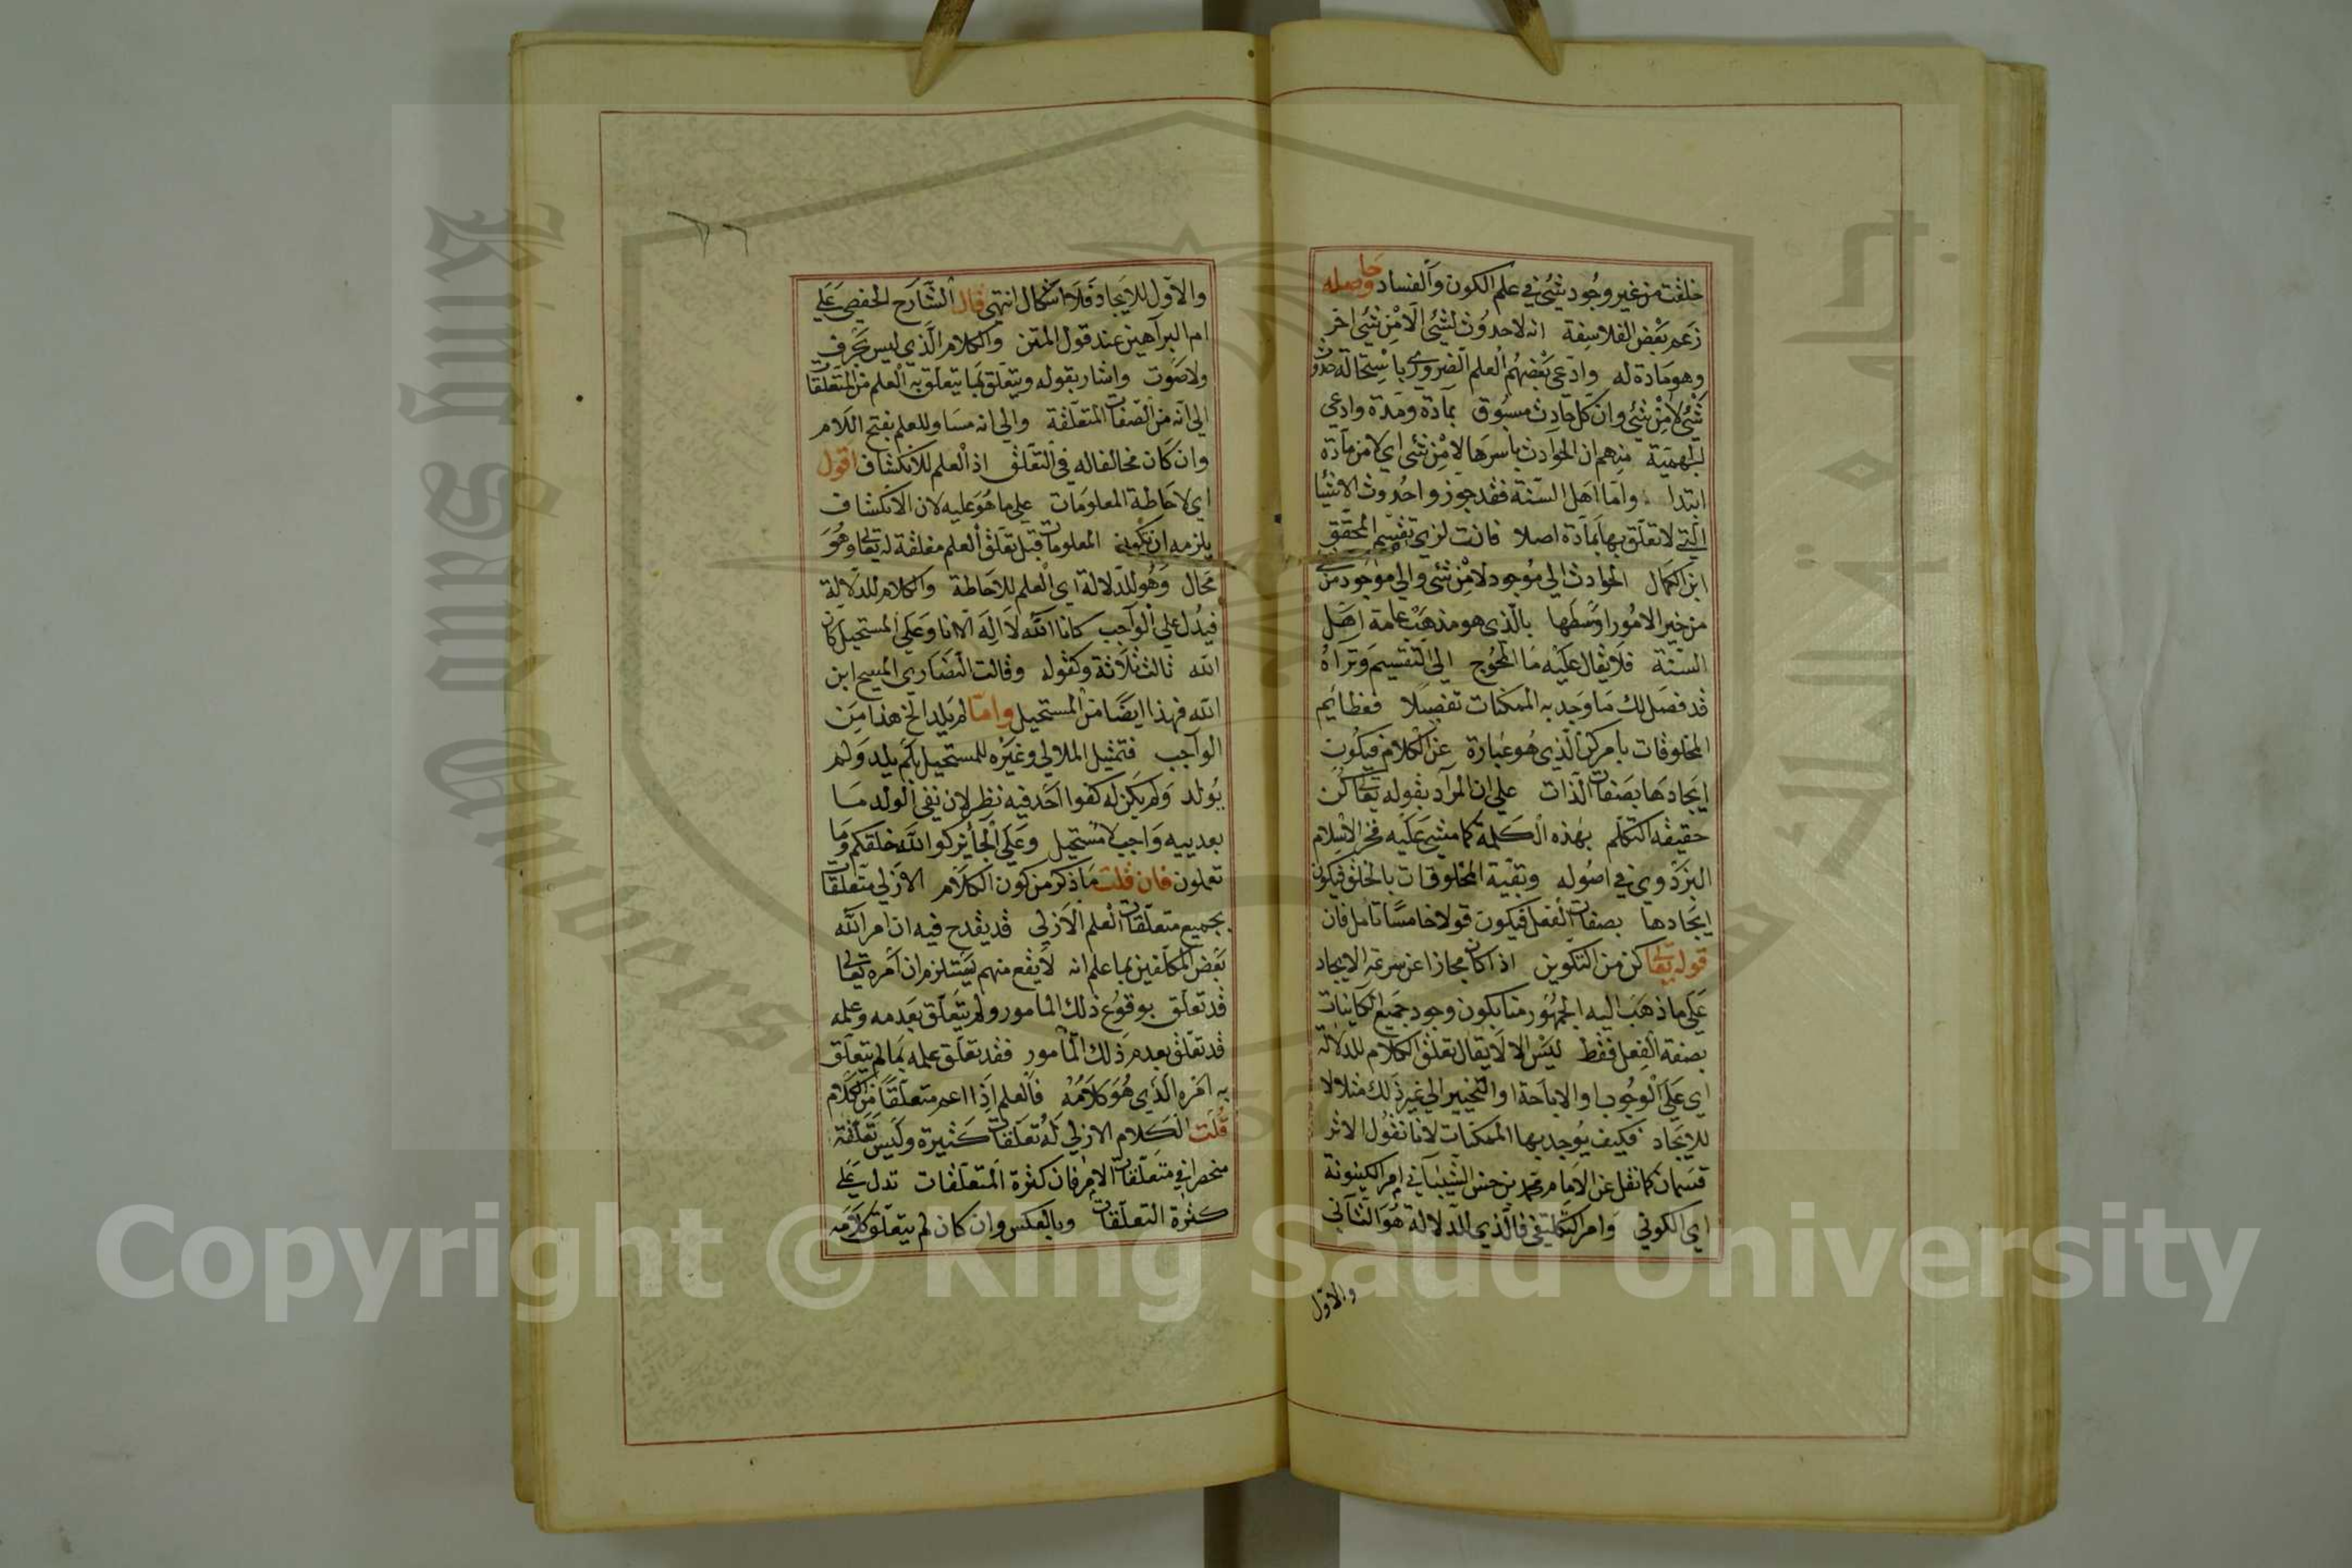 خلقت من غير وجود شئ في علم الكون والفساد وحاصله
زعم بعض الفلاسفة انه لا حدوث لشئ الا من شئ اخر
وهو مادة له وادعى بعضهم العلم الضروري باستحالة حدوث
شئ لا من شئ وان كل حادث مسبوق بمادة ومدة وادعى
الجهمية منهم ان الحوادث باسرها لا من شئ اي لا من مادة
ابتدا واما اهل السنة فقد جوزوا حدوث الاشيا
التي لا تعلق بها بمادة اصلا فانت لزي تقسيم المحقق
ابن الكمال الحوادث الى موجود لا من شئ والى موجود من شئ
من خير الامور اوسطها بالذي هو مذهب عامة اهل
السنة فلا يقال عليه ما المحوج الى التقسيم وتراه
قد فصل لك ما وجد به الممكنات تفصيلا فعظايم
المخلوقات بامر كن الذي هو عبارة عن الكلام فيكون
ايجادها بصفات الذات على ان المراد بقوله تعالى كن
حقيقة التكلم بهذه الكلمة كما مشى عليه فخر الاسلام
البزدوي في اصوله وبقية المخلوقات بالخلق فيكون
ايجادها بصفات الفعل فيكون قولا خامسا تامل فان
قوله تعالى كن من التكوين اذا كان مجازا عن سرعة الايجاد
على ما ذهب اليه الجمهور منا يكون وجود جميع الكاينات
بصفة الفعل فقط ليس الا لا يقال تعلق الكلام للدلالة
اي على الوجوب او الاباحة او التخيير الى غير ذلك مثلا لا
للايجاد فكيف يوجد بها الممكنات لانا نقول الاثر
قسمان كما نقل عن الامام محمد بن حسن الشيباني امر الكينونة
اي الكوني وامر التكليفي فالذي للدلالة هو الثاني
والاول
٢٦
والاول للايجاد فلا اشكال انتهى قال الشارح الحفصي على
ام البراهين عند قول المتن والكلام الذي ليس بحرف
ولا صوت واشار بقوله ويتعلق بما يتعلق به العلم من المتعلقات
الى انه من الصفات المتعلقة والى انه مساو للعلم بفتح اللام
وان كان مخالفا له في التعلق اذ العلم للانكشاف اقول
اي لاحاطة المعلومات على ما هو عليه لان الانكشاف
يلزمه ان تكون المعلومات قبل تعلق العلم مغلقة له تعالى وهو
محال وهو للدلالة اي العلم للاحاطة والكلام للدلالة
فيدل على الواجب كانا الله لا اله الا انا وعلى المستحيل كان
الله ثالث ثلاثة وكقوله وقالت النصارى المسيح ابن
الله فهذا ايضا من المستحيل واما لم يلد الخ هذا من
الواجب فتمثيل الملالي وغيره للمستحيل بلم يلد ولم
يولد ولم يكن له كفوا احد فيه نظر لان نفي الولد مـا
بعد ييه واجب لا مستحيل وعلى الجايز كوالله خلقكم وما
تعملون فان قلت ما ذكر من كون الكلام الازلي متعلقات
بجميع متعلقات العلم الازلي قد يقدح فيه ان امر الله
بعض المكلفين بما علم انه لا يقع منهم يستلزم ان امره تعالى
قد تعلق بوقوع ذلك المامور ولم يتعلق بعدمه وعلمه
قد تعلق بعدم ذلك المأمور فقد تعلق علمه بما لم يتعلق
به امره الذي هو كلامه فالعلم اذا اعم متعلقا من الكلام
قلت الكلام الازلي له تعلقات كثيرة وليس تعلقه
منحصرا في متعلقات الامر فان كثرة المتعلقات تدل على
كثرة التعلقات وبالعكس وان كان لم يتعلق كلامه
Copyright © King Saud University
King Saud University